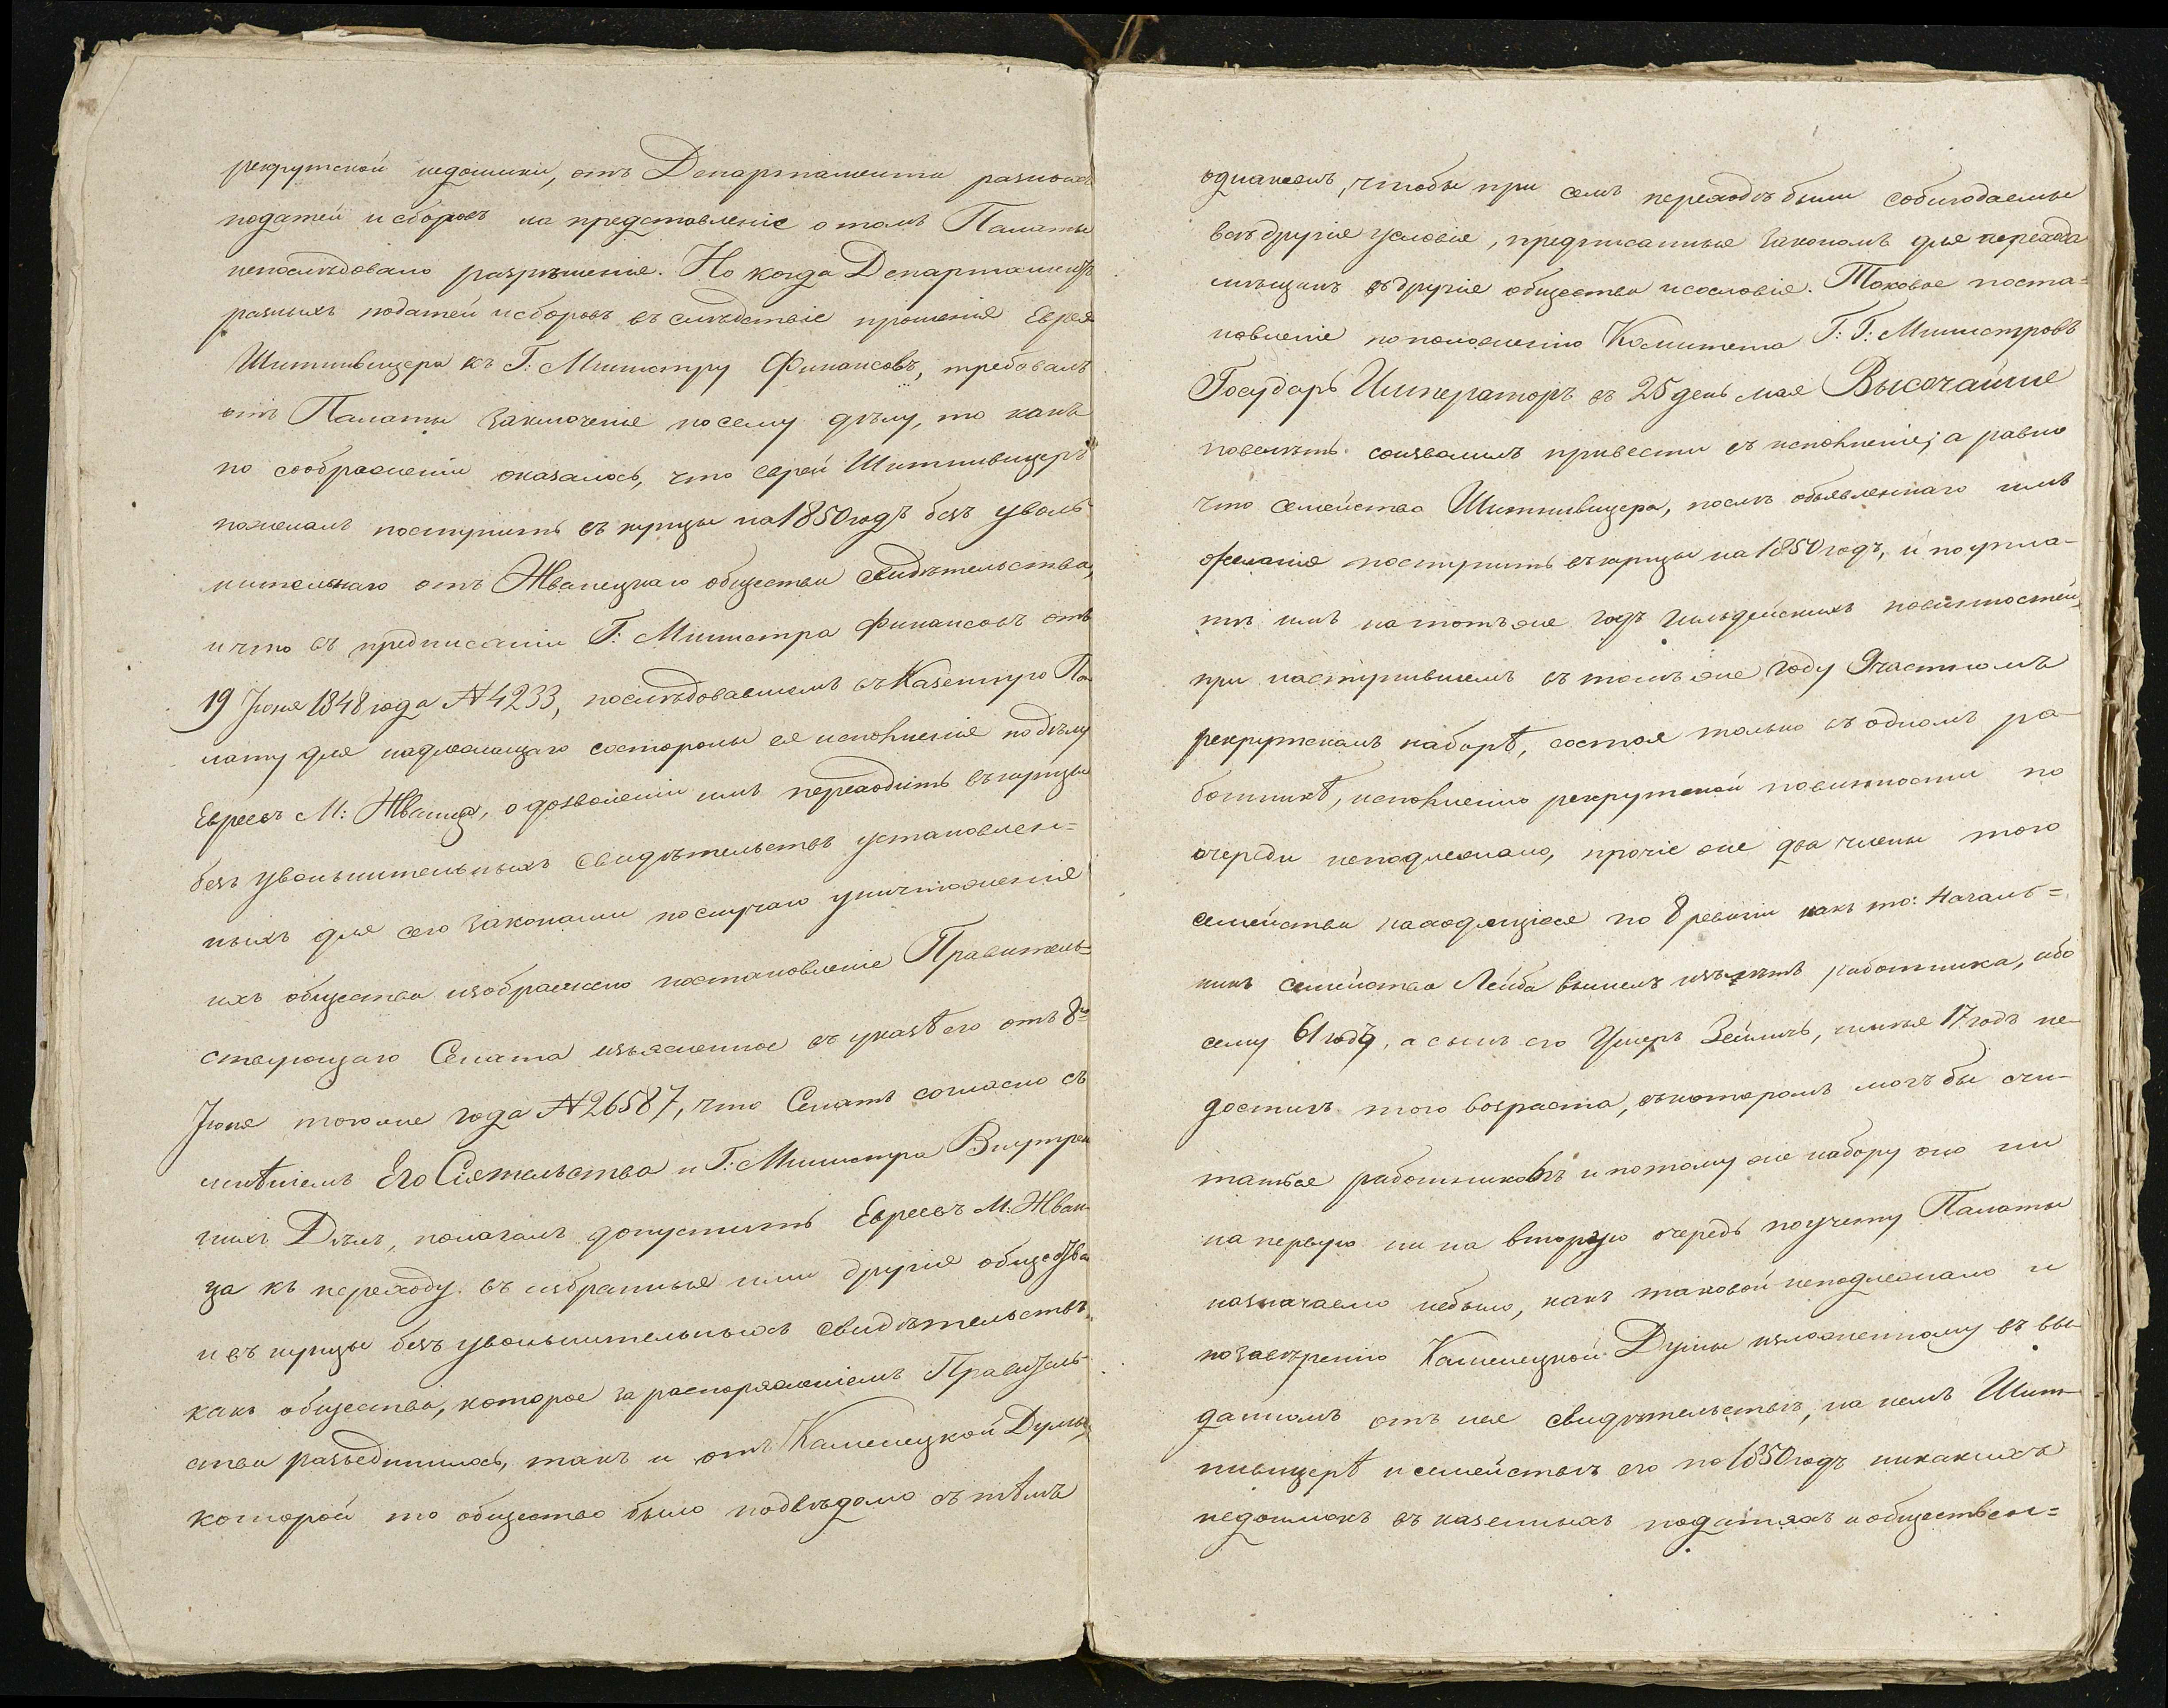 рекрутской недоимки, отъ Департамента разныхъ
податей и сборовъ на представленіе о томъ Палаты
непослѣдовало разрѣшенія. Но когда Департаментъ
разныхъ податей и сборовъ въ слѣдствіе прошенія Еврея
Шитнивицера къ Г: Министру Финансовъ, требовалъ
отъ Палаты заключенія по сему дѣлу, то какъ
по соображеніи оказалось, что еврей Шитнивицеръ
пожелалъ поступить въ купцы на 1850 годъ безъ уволь-
нительнаго отъ Жванецкаго общества свидѣтельства,
и что въ предписаніи Г: Министра Финансовъ отъ
19 Іюня 1848 года №4233, послѣдовавшемъ въ Казенную Па-
лату для надлежащаго состороны ея исполненія по дѣлу
Евреевъ М: Жванца, о дозволеніи имъ переходить въ купцы
безъ увольнительныхъ свидѣтельствъ установлен=
ныхъ для сего законами по случаю уничтоженія
ихъ общества изображено постановленіе Правитель-
ствующаго Сената изъясненное въ указѣ его отъ 8го
Іюня того же года №26587, что Сенатъ согласно съ
мнѣніемъ Его Сіятельства и Г: Министра Внутрен-
нихъ Дѣлъ, полагалъ допустить Евреевъ М: Жван-
ца къ переходу въ избранныя ими другія общества
и въ купцы безъ увольнительныхъ свидѣтельствъ,
какъ общества, которое за распоряженіемъ Правитель-
ства разъединилось, такъ и отъ Каменецкой Думы,
которой то общество было подвѣдомо съ тѣмъ
однакожъ, чтобы при семъ переходѣ были соблюдаемы
всѣ другія условія, предписанныя закономъ для перехода
мѣщанъ въ другія общества и сословія. Таковое поста=
новленіе по положенію Комитета Г: Г: Министровъ
Государь Императоръ въ 25 день мая Высочайше
повелѣть соизволилъ привести въ исполненіе; а равно
что семейство Шитнивицера, послѣ объявленнаго имъ
желанія поступить въ купцы на 1850 годъ, и по упла-
тѣ имъ на тотъ же годъ гильдейскихъ повинностей,
при наступившемъ въ томъ же году 9 частномъ
рекрутскомъ наборѣ, состоя только въ одномъ ра-
ботникѣ, исполненію рекрутской повинности по
очереди неподлежало, прочіе же два члены того
семейства находящіеся по 8 ревизіи какъ то: Началь=
никъ семейства Лейба вышелъ изъ лѣтъ работника, ибо
сему 61 годъ, а сынъ его Ушеръ Зейликъ, имѣя 17 годъ не-
достигъ того возраста, въ которомъ могъ бы счи-
таться работникомъ и потому же набору оно ни
на первую ни на вторую очередь по учету Палаты
назначаемо небыло, какъ таковой неподлежало и
по завѣренію Каменецкой Думы изложенному въ вы-
данномъ отъ нея свидѣтельствѣ, на немъ Шит-
нивицерѣ и семействѣ его по 1850 годъ никакихъ
недоимокъ въ казенныхъ податяхъ и обществен=